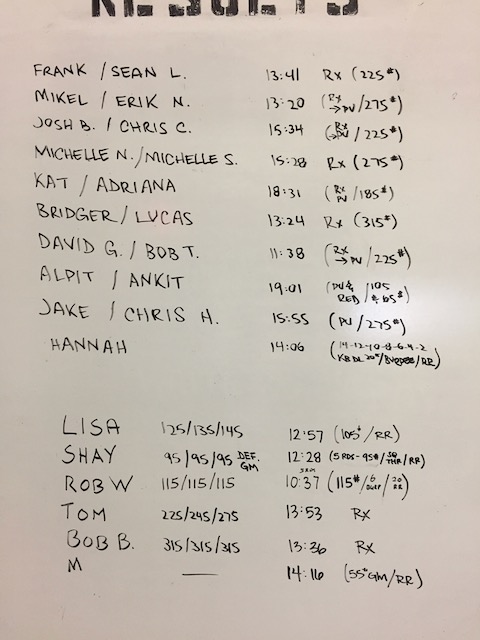 RESULTS
FRANK / SEAN L. 13:41 Rx (225#)
MIKEL / ERIK N. 13:20 (Rx → PU / 275#)
JOSH B. / CHRIS C. 15:34 (Rx → PU / 225#)
MICHELLE N. / MICHELLE S. 15:28 Rx (275#)
KAT / ADRIANA 18:31 (Rx PU / 185#)
BRIDGER / LUCAS 13:24 Rx (315#)
DAVID G. / BOB T. 11:38 (Rx → PU / 225#)
ALPIT / ANKIT 19:01 (PU & RED / 105 & 65#)
JAKE / CHRIS H. 15:55 (PU / 275#)
HANNAH 14:06 (14-12-10-8-6-4-2 KB DL 20# / BURPEE / RR)
LISA 125/135/145 12:57 (105# / RR)
SHAY 95/95/95 DEF. GM 12:28 (5 RDS - 95# / THR / RR)
ROB W 115/115/115 10:37 (115# / 6 BURP / 20 RR)
TOM 225/245/275 13:53 Rx
BOB B. 315/315/315 13:36 Rx
M — 14:16 (55# GM / RR)